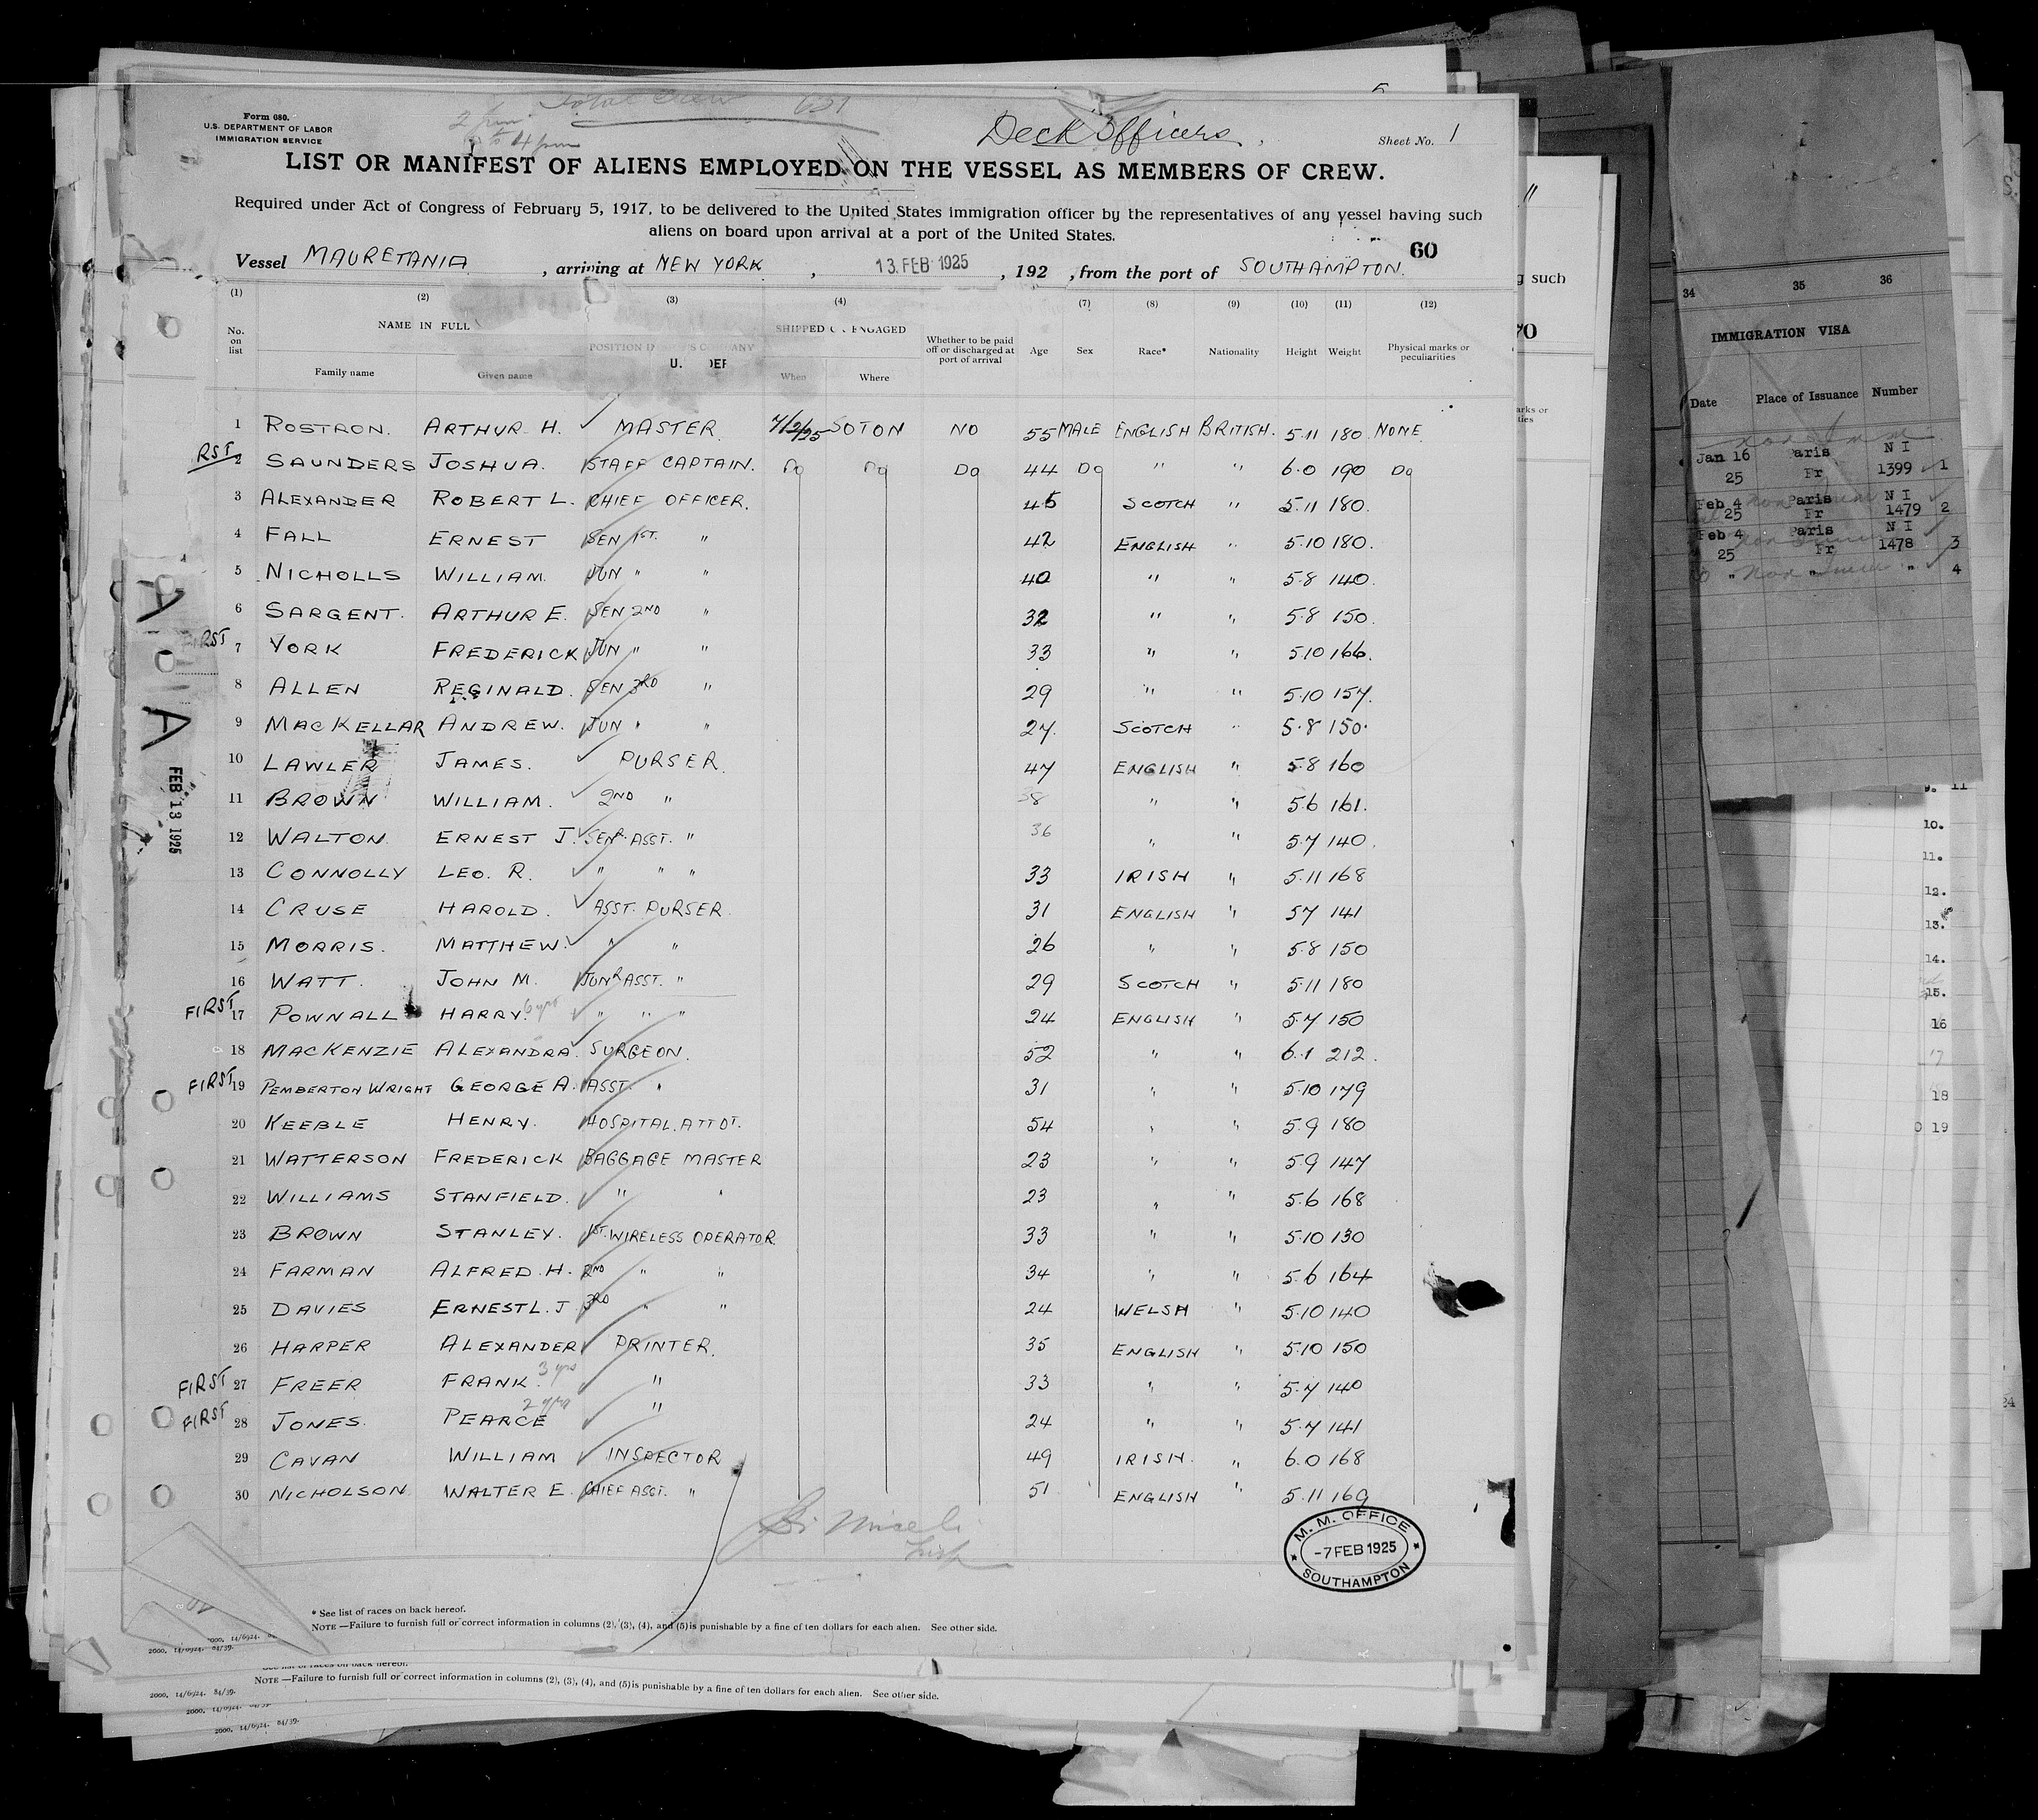 Total Crew 651
2 pm
to 4 pm
Form 680.
U.S. DEPARTMENT OF LABOR
IMMIGRATION SERVICE
Deck Officers.
Sheet No. 1
LIST OR MANIFEST OF ALIENS EMPLOYED ON THE VESSEL AS MEMBERS OF CREW.
Required under Act of Congress of February 5, 1917, to be delivered to the United States immigration officer by the representatives of any vessel having such
aliens on board upon arrival at a port of the United States.
60
Vessel MAURETANIA, arriving at NEW YORK, 13 FEB 1925, 192 , from the port of SOUTHAMPTON.
(1) (2) (3) (4) (7) (8) (9) (10) (11) (12)
No. on list NAME IN FULL Family name Given name POSITION SHIPPED ENGAGED When Where Whether to be paid off or discharged at port of arrival Age Sex Race* Nationality Height Weight Physical marks or peculiarities
1 ROSTRON. ARTHUR H. MASTER. 7/2/25 SOTON NO 55 MALE ENGLISH BRITISH. 5.11 180 NONE
RST 2 SAUNDERS JOSHUA. STAFF CAPTAIN. Do Do Do 44 Do " " 6.0 190 Do
3 ALEXANDER ROBERT L. CHIEF OFFICER. 45 SCOTCH " 5.11 180.
4 FALL ERNEST SEN 1ST. " 42 ENGLISH " 5.10 180.
5 NICHOLLS WILLIAM. JUN " " 40 " " 5.8 140.
6 SARGENT. ARTHUR E. SEN 2ND " 32 " " 5.8 150.
RST 7 YORK FREDERICK JUN " " 33 " " 5.10 166.
8 ALLEN REGINALD. SEN 3RD " 29 " " 5.10 157.
9 MACKELLAR ANDREW. JUN " " 27. SCOTCH " 5.8 150.
10 LAWLER JAMES. PURSER. 47 ENGLISH " 5.8 160
11 BROWN WILLIAM. 2ND " 38 " " 5.6 161.
12 WALTON. ERNEST J. SENR. ASST. " 36 " " 5.7 140.
13 CONNOLLY LEO. R. " " " 33 IRISH " 5.11 168
14 CRUSE HAROLD. ASST. PURSER. 31 ENGLISH " 5.7 141
15 MORRIS. MATTHEW. " " 26 " " 5.8 150
16 WATT. JOHN M. JUNR ASST. " 29 SCOTCH " 5.11 180
FIRST 17 POWNALL HARRY. 6 yrs " " " 24 ENGLISH " 5.7 150
18 MACKENZIE ALEXANDRA. SURGEON. 52 " " 6.1 212.
FIRST 19 PEMBERTON WRIGHT GEORGE A. ASST. " 31 " " 5.10 179
20 KEEBLE HENRY. HOSPITAL. ATTDT. 54 " " 5.9 180
21 WATTERSON FREDERICK BAGGAGE MASTER 23 " " 5.9 147
22 WILLIAMS STANFIELD. " " 23 " " 5.6 168
23 BROWN STANLEY. 1ST. WIRELESS OPERATOR. 33 " " 5.10 130
24 FARMAN ALFRED. H. 2ND " " 34 " " 5.6 164
25 DAVIES ERNEST L. J. 3RD " " 24 WELSH " 5.10 140
26 HARPER ALEXANDER PRINTER. 35 ENGLISH " 5.10 150
FIRST 27 FREER FRANK. 3 yrs " 33 " " 5.7 140
FIRST 28 JONES. PEARCE 2 yrs " 24 " " 5.7 141
29 CAVAN WILLIAM INSPECTOR 49 IRISH. " 6.0 168
30 NICHOLSON WALTER E. CHIEF ASST. " 51 ENGLISH " 5.11 169
FEB 13 1925
M. M. OFFICE
-7 FEB 1925
SOUTHAMPTON
* See list of races on back hereof.
NOTE—Failure to furnish full or correct information in columns (2), (3), (4), and (5) is punishable by a fine of ten dollars for each alien. See other side.
2000. 14/6924. 84/39.
NOTE—Failure to furnish full or correct information in columns (2), (3), (4), and (5) is punishable by a fine of ten dollars for each alien. See other side.
2000. 14/6924. 84/39.
2000. 14/6924. 84/39.
2000. 14/6924. 84/39.
such
34 35 36
IMMIGRATION VISA
Date Place of Issuance Number
Jan 16 Paris N I
25 Fr 1399 1
Feb 4 Paris N I
25 Fr 1479 2
Feb 4 Paris N I
25 Fr 1478 3
" " " 4
11
10.
11.
12.
13.
14.
15.
16
17
18
19
24